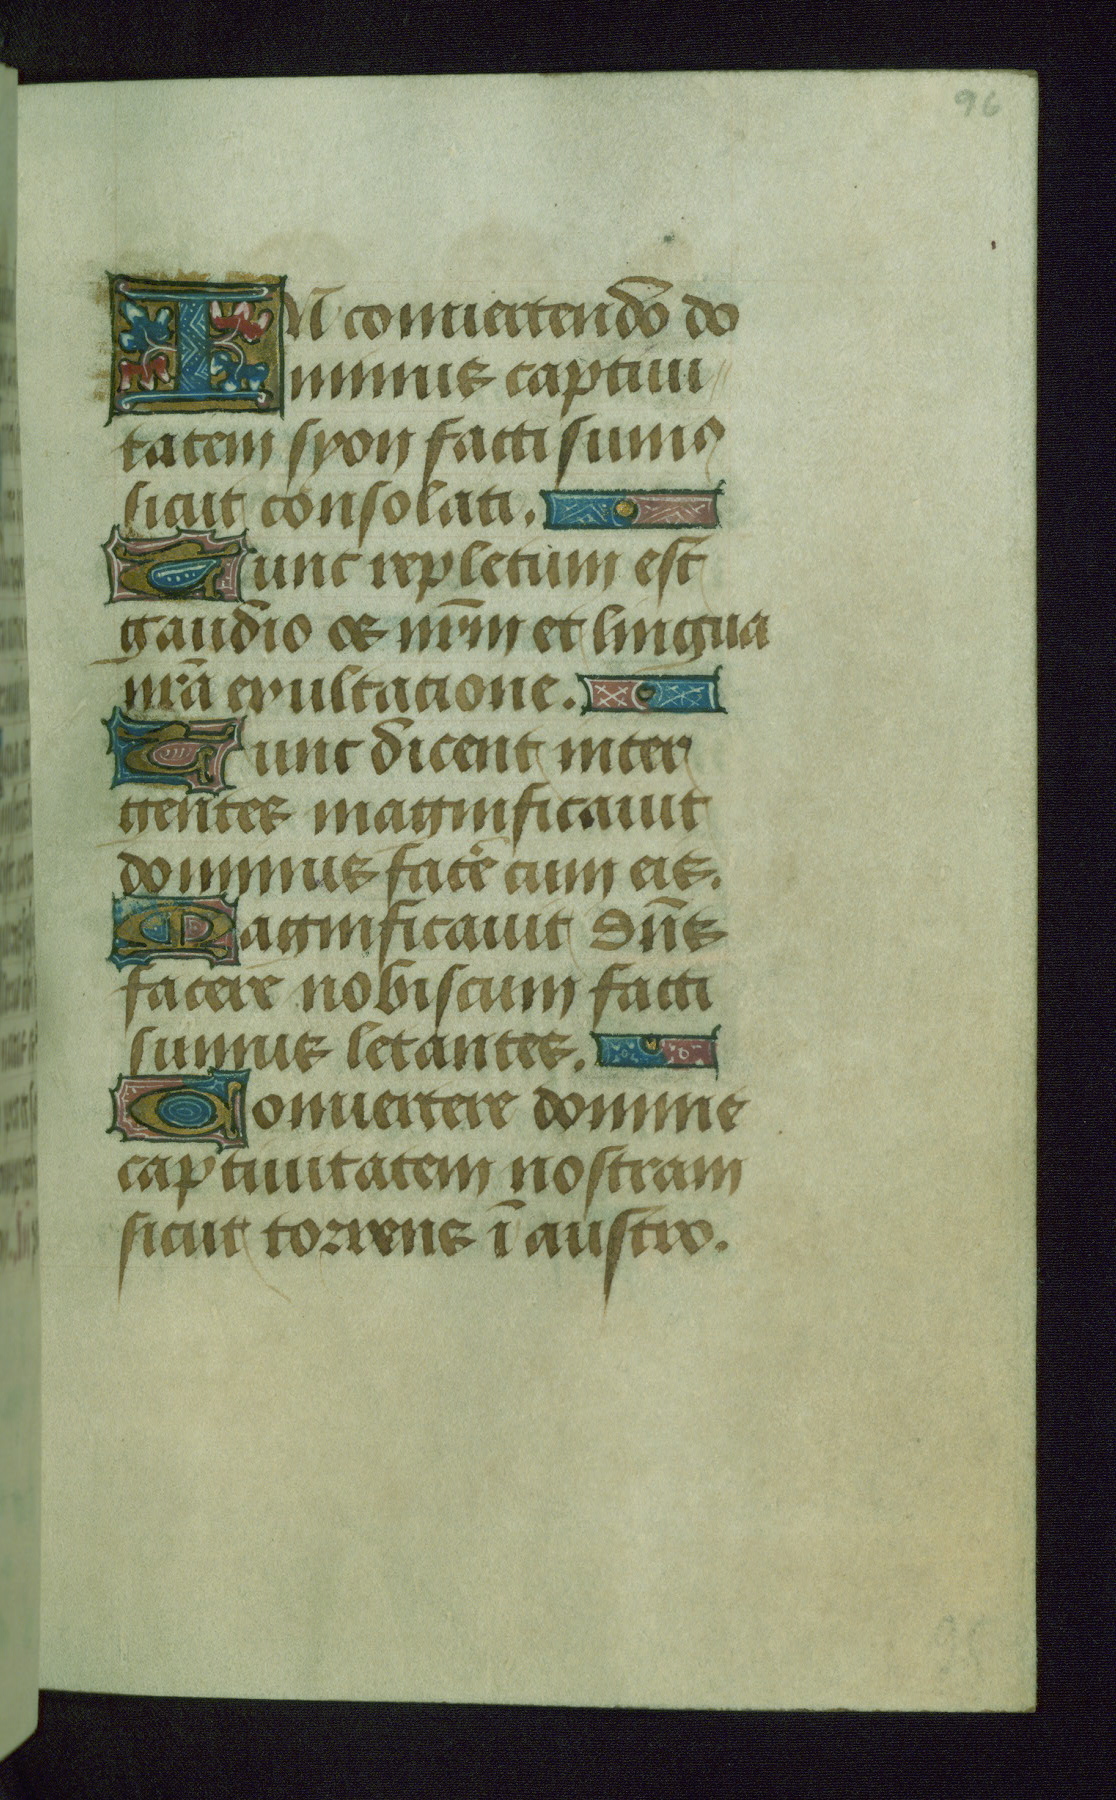 96
IN convertendo do
minus captiui
tatem syon facti sumꝰ
sicut consolati.
Tunc repletum est
gaudio os nr̄m et lingua
nr̄a exultatione.
Tunc dicent inter
gentes magnificauit
dominus facēr cum eis.
Magnificauit Dn̄s
facere nobiscum facti
sumus letantes.
Conuertere domine
captiuitatem nostram
sicut torrens ī austro.